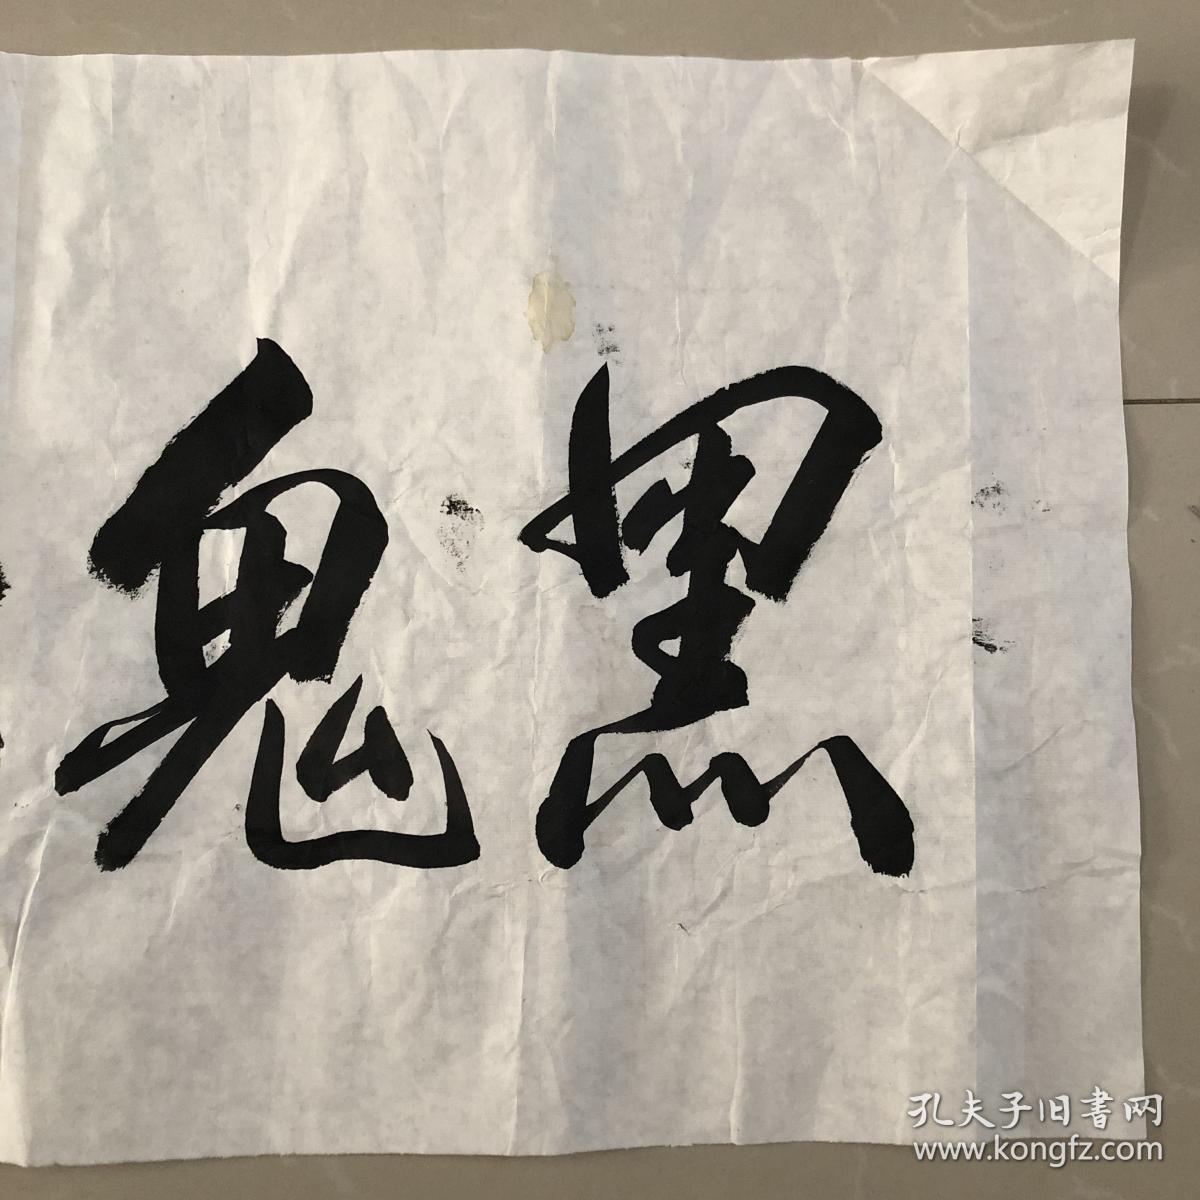 黑鬼
孔夫子旧書网
www.kongfz.com